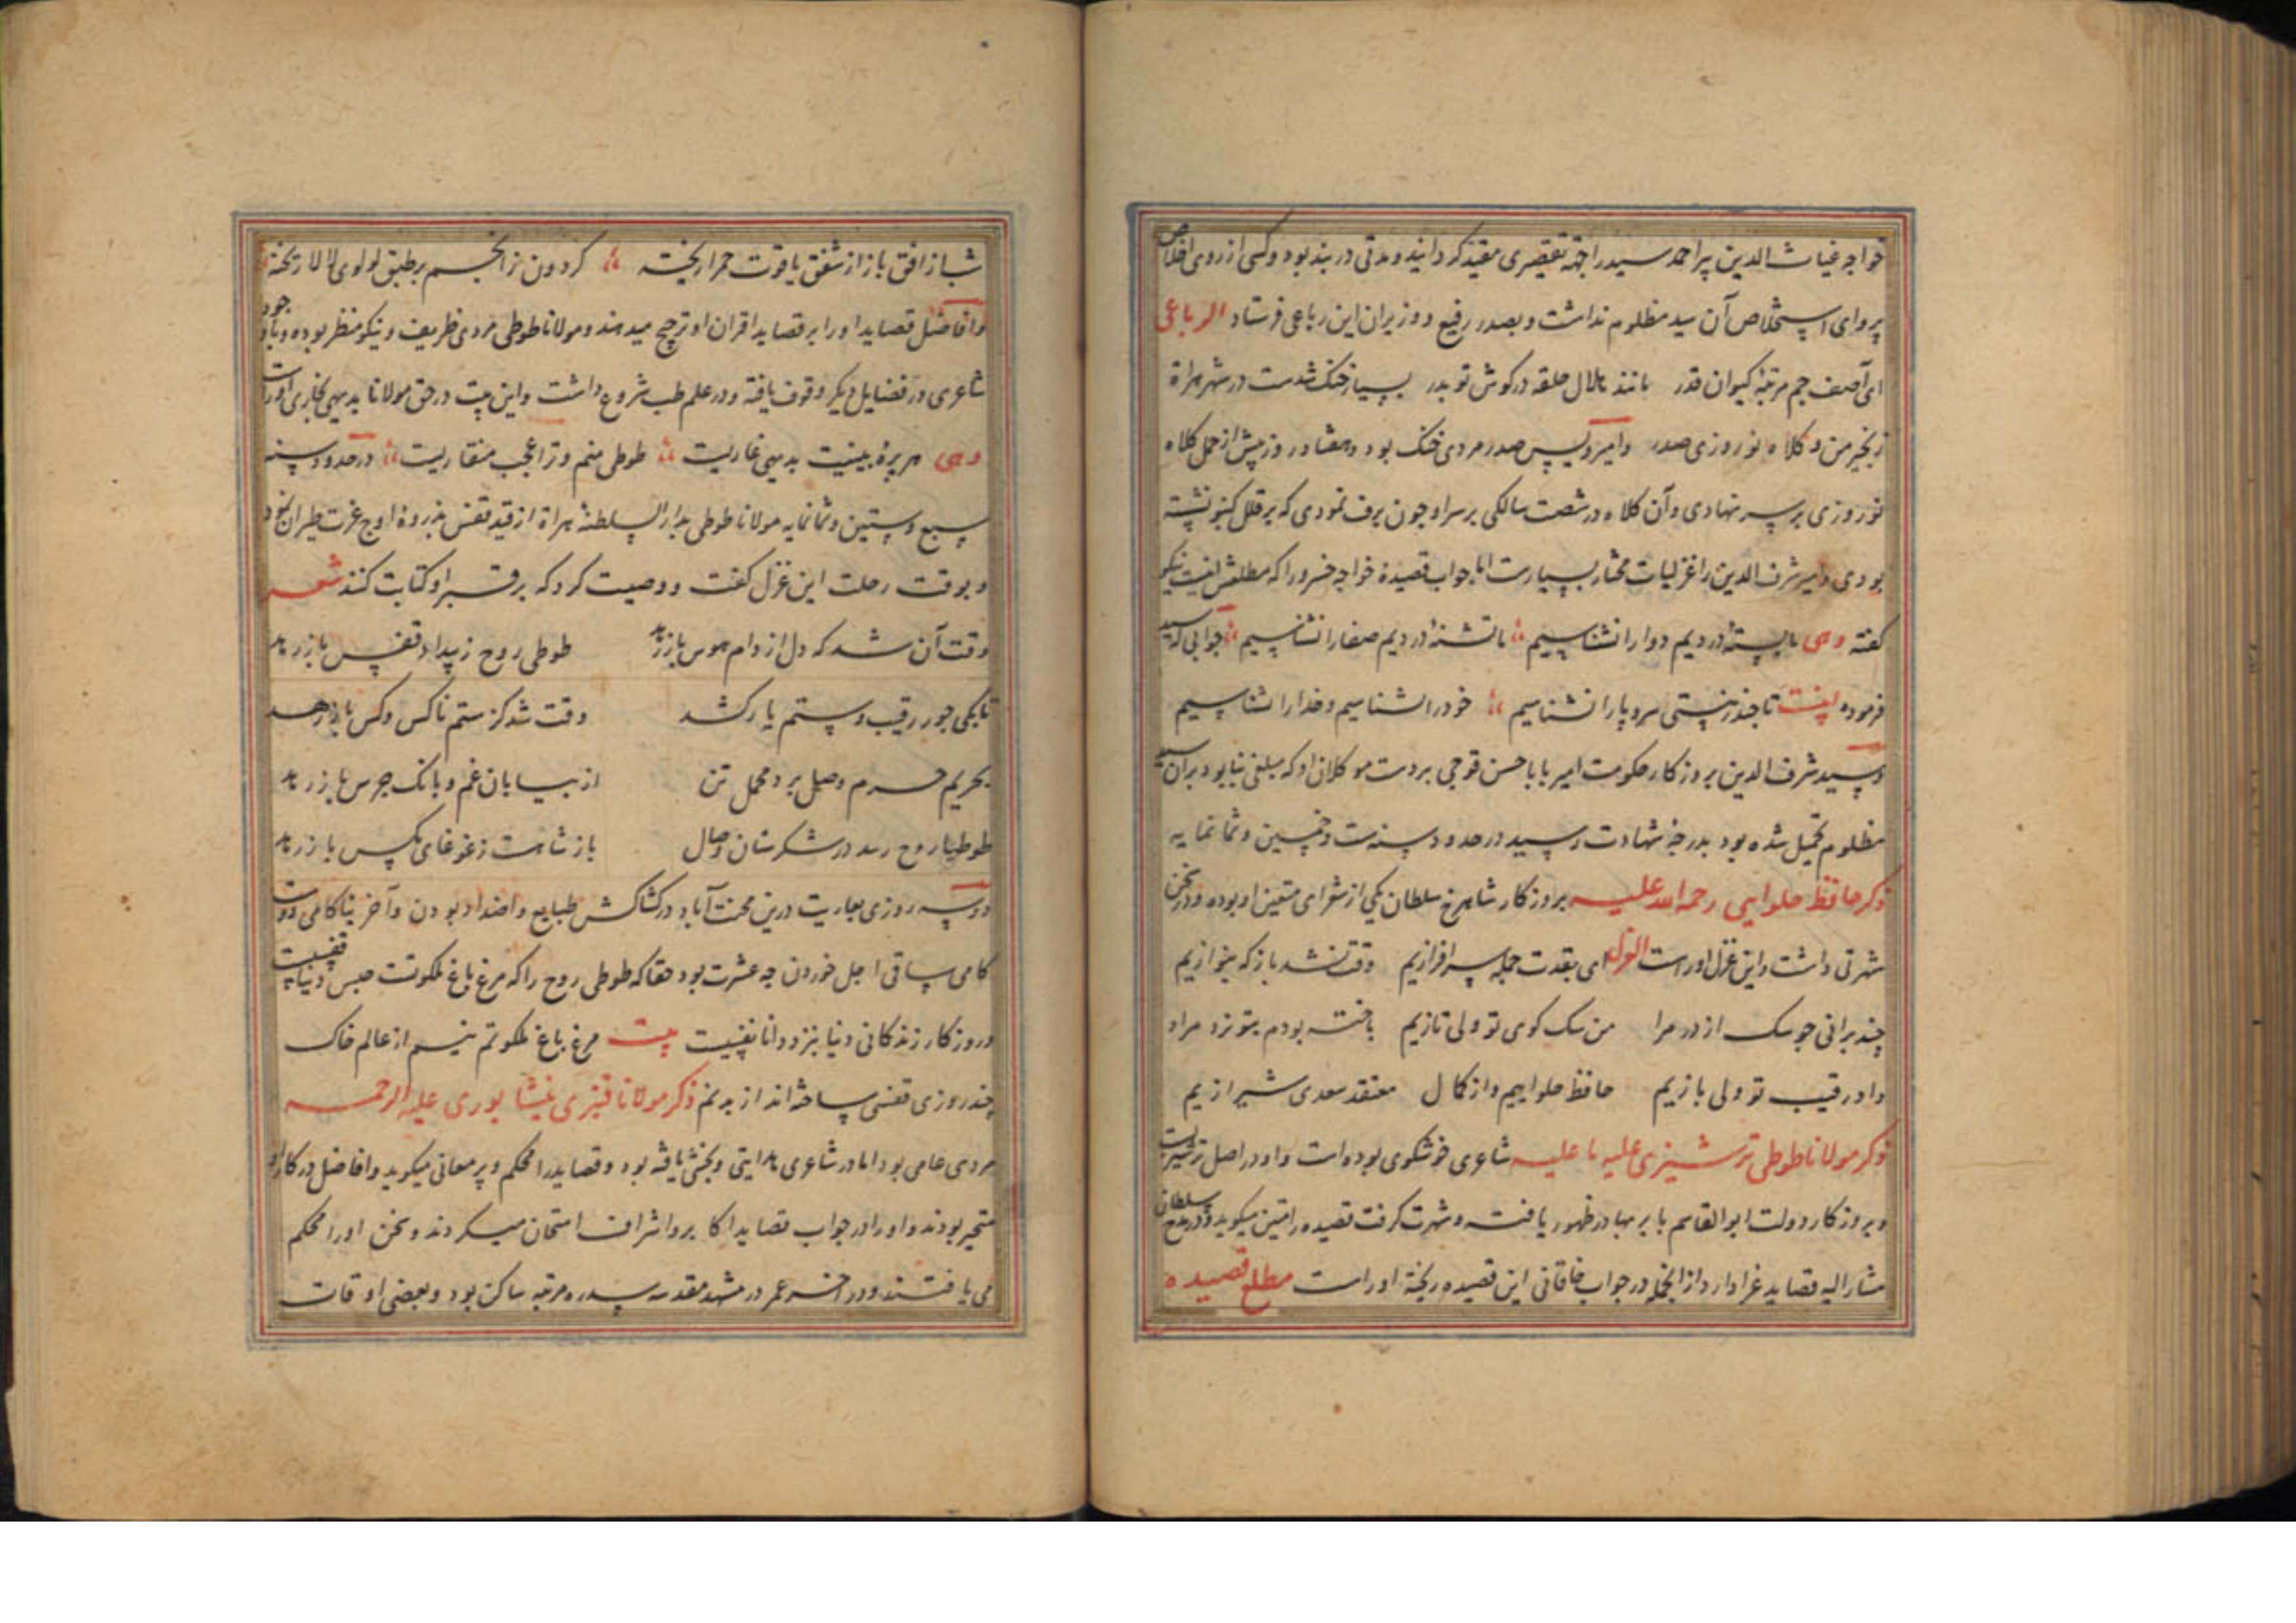 خواجه غیاث الدین پیر احمد سید را جهة تقصیری مقید کردانید و مدتی در بند بود و کسی از روی اخلاص
پروای استخلاص آن سید مظلوم نداشت و بصدر رفیع و وزیران این رباعی فرستاد الرباعی
ای آصف جم مرتبهٔ کیوان قدر مانند هلال حلقه در کوش تو بدر بسیار خنک شدست در شهر هراة
زنجیر من و کلاه نوروزی صدر و امیر ویس صدر مردی خنک بود و هفتاد روز پیش از حمل کلاه
نوروزی بر سر نهادی و آن کلاه در شصت سالکی بر سر او چون برف نمودی که بر قلل کنبو نشسته
بودی و امیر شرف الدین را غزلیات مختار بسیارست اما جواب قصیدهٔ خواجه خسرو را که مطلعش اینست نیکو
کفته وهی ما بستهٔ دردیم دوا را نشناسیم ما تشنهٔ دردیم صفا را نشناسیم جوابی که سید
فرموده اینست تا چند ز پستی سر و پا را نشناسیم خود را نشناسیم و خدا را نشناسیم
و سید شرف الدین بروزکار حکومت امیر بابا حسن قوجی بر دست موکلان او که مبلغی بنابود بر آن سید
مظلوم تحمیل شده بود بدرجهٔ شهادت رسید در حدود سنه ست و خمسین و ثمانمایه
ذکر حافظ حلوایی رحمة الله علیه بروزکار شاهرخ سلطان یکی از شعرای متعین او بوده و در سخن
شهرتی داشت و این غزل اوراست الغزل ای بقدت جمله سرافرازیم وقت نشد باز که بنوازیم
چند برانی چو سک از در مرا من سک کوی تو ولی تازیم باخته بودم بتو نرد مراد
داد رقیب تو ولی بازیم حافظ حلواییم و از کمال معتقد سعدی شیرازیم
ذکر مولانا طوطی ترشیزی علیه ما علیه شاعری خوشکوی بوده است و او در اصل ترشیزیست
و بروزکار دولت ابوالقاسم بابر بهادر ظهور یافت و شهرت کرفت قصیده را متین میکوید و در مدح سلطان
مشار الیه قصاید غرا دارد از انجمله در جواب خاقانی این قصیده ریخته اوراست مطلع قصیده
شباز افق باز از شفق یاقوت حمرا ریخته کردون ز انجم بر طبق لولوی لالا ریخته
و افاضل قصاید او را بر قصاید اقران او ترجیح میدهند و مولانا طوطی مردی ظریف و نیکو منظر بوده و باوجود
شاعری در فضایل دیکر وقوف یافته و در علم طب شروع داشت و این بیت در حق مولانا بدیهی بخاری اوراست
وهی هر پرهٔ بینیت بدیهی غاریست طوطی منم و ترا عجب منقاریست در حدود سنه
سبع و ستین و ثمانمایه مولانا طوطی بدار السلطنهٔ هراة از قید قفس بذروهٔ اوج عزت طیران نمود
و بوقت رحلت این غزل کفت و وصیت کرد که بر قبر او کتابت کنند شعر
وقت آن شد که دل از دام هوس باز رهد طوطی روح ز بیداد قفس باز رهد
تا بکی جور رقیب و ستم یار کشد وقت شد کز ستم ناکس و کس باز رهد
بحریم حرم وصل برد محمل تن از بیابان غم و بانک جرس باز رهد
طوطیا روح رسد در شکرستان وصال باز شاهت ز غوغای مکس باز رهد
دو سه روزی بعاریت درین محنت آباد در کشاکش طبایع و اضداد بودن و آخر بناکامی دوست
کامی ساقی اجل خوردن چه عشرت بود حقا که طوطی روح را که مرغ باغ ملکوتست حبس دنیا قفسیست
و روزکار زندکانی دنیا بنزد دانا نفسیست بیت مرغ باغ ملکوتم نیم از عالم خاک
چند روزی قفسی ساخته اند از بدنم ذکر مولانا قنبری نیشابوری علیه الرحمه
مردی عامی بود اما در شاعری هدایتی و بخشی یافته بود و قصاید را محکم و پر معانی میکوید و افاضل در کار او
متحیر بودند و او را در جواب قصاید اکابر و اشراف امتحان میکردند و سخن او را محکم
می یافتند و در اخر عمر در مشهد مقدسه سدره مرتبه ساکن بود و بعضی اوقات